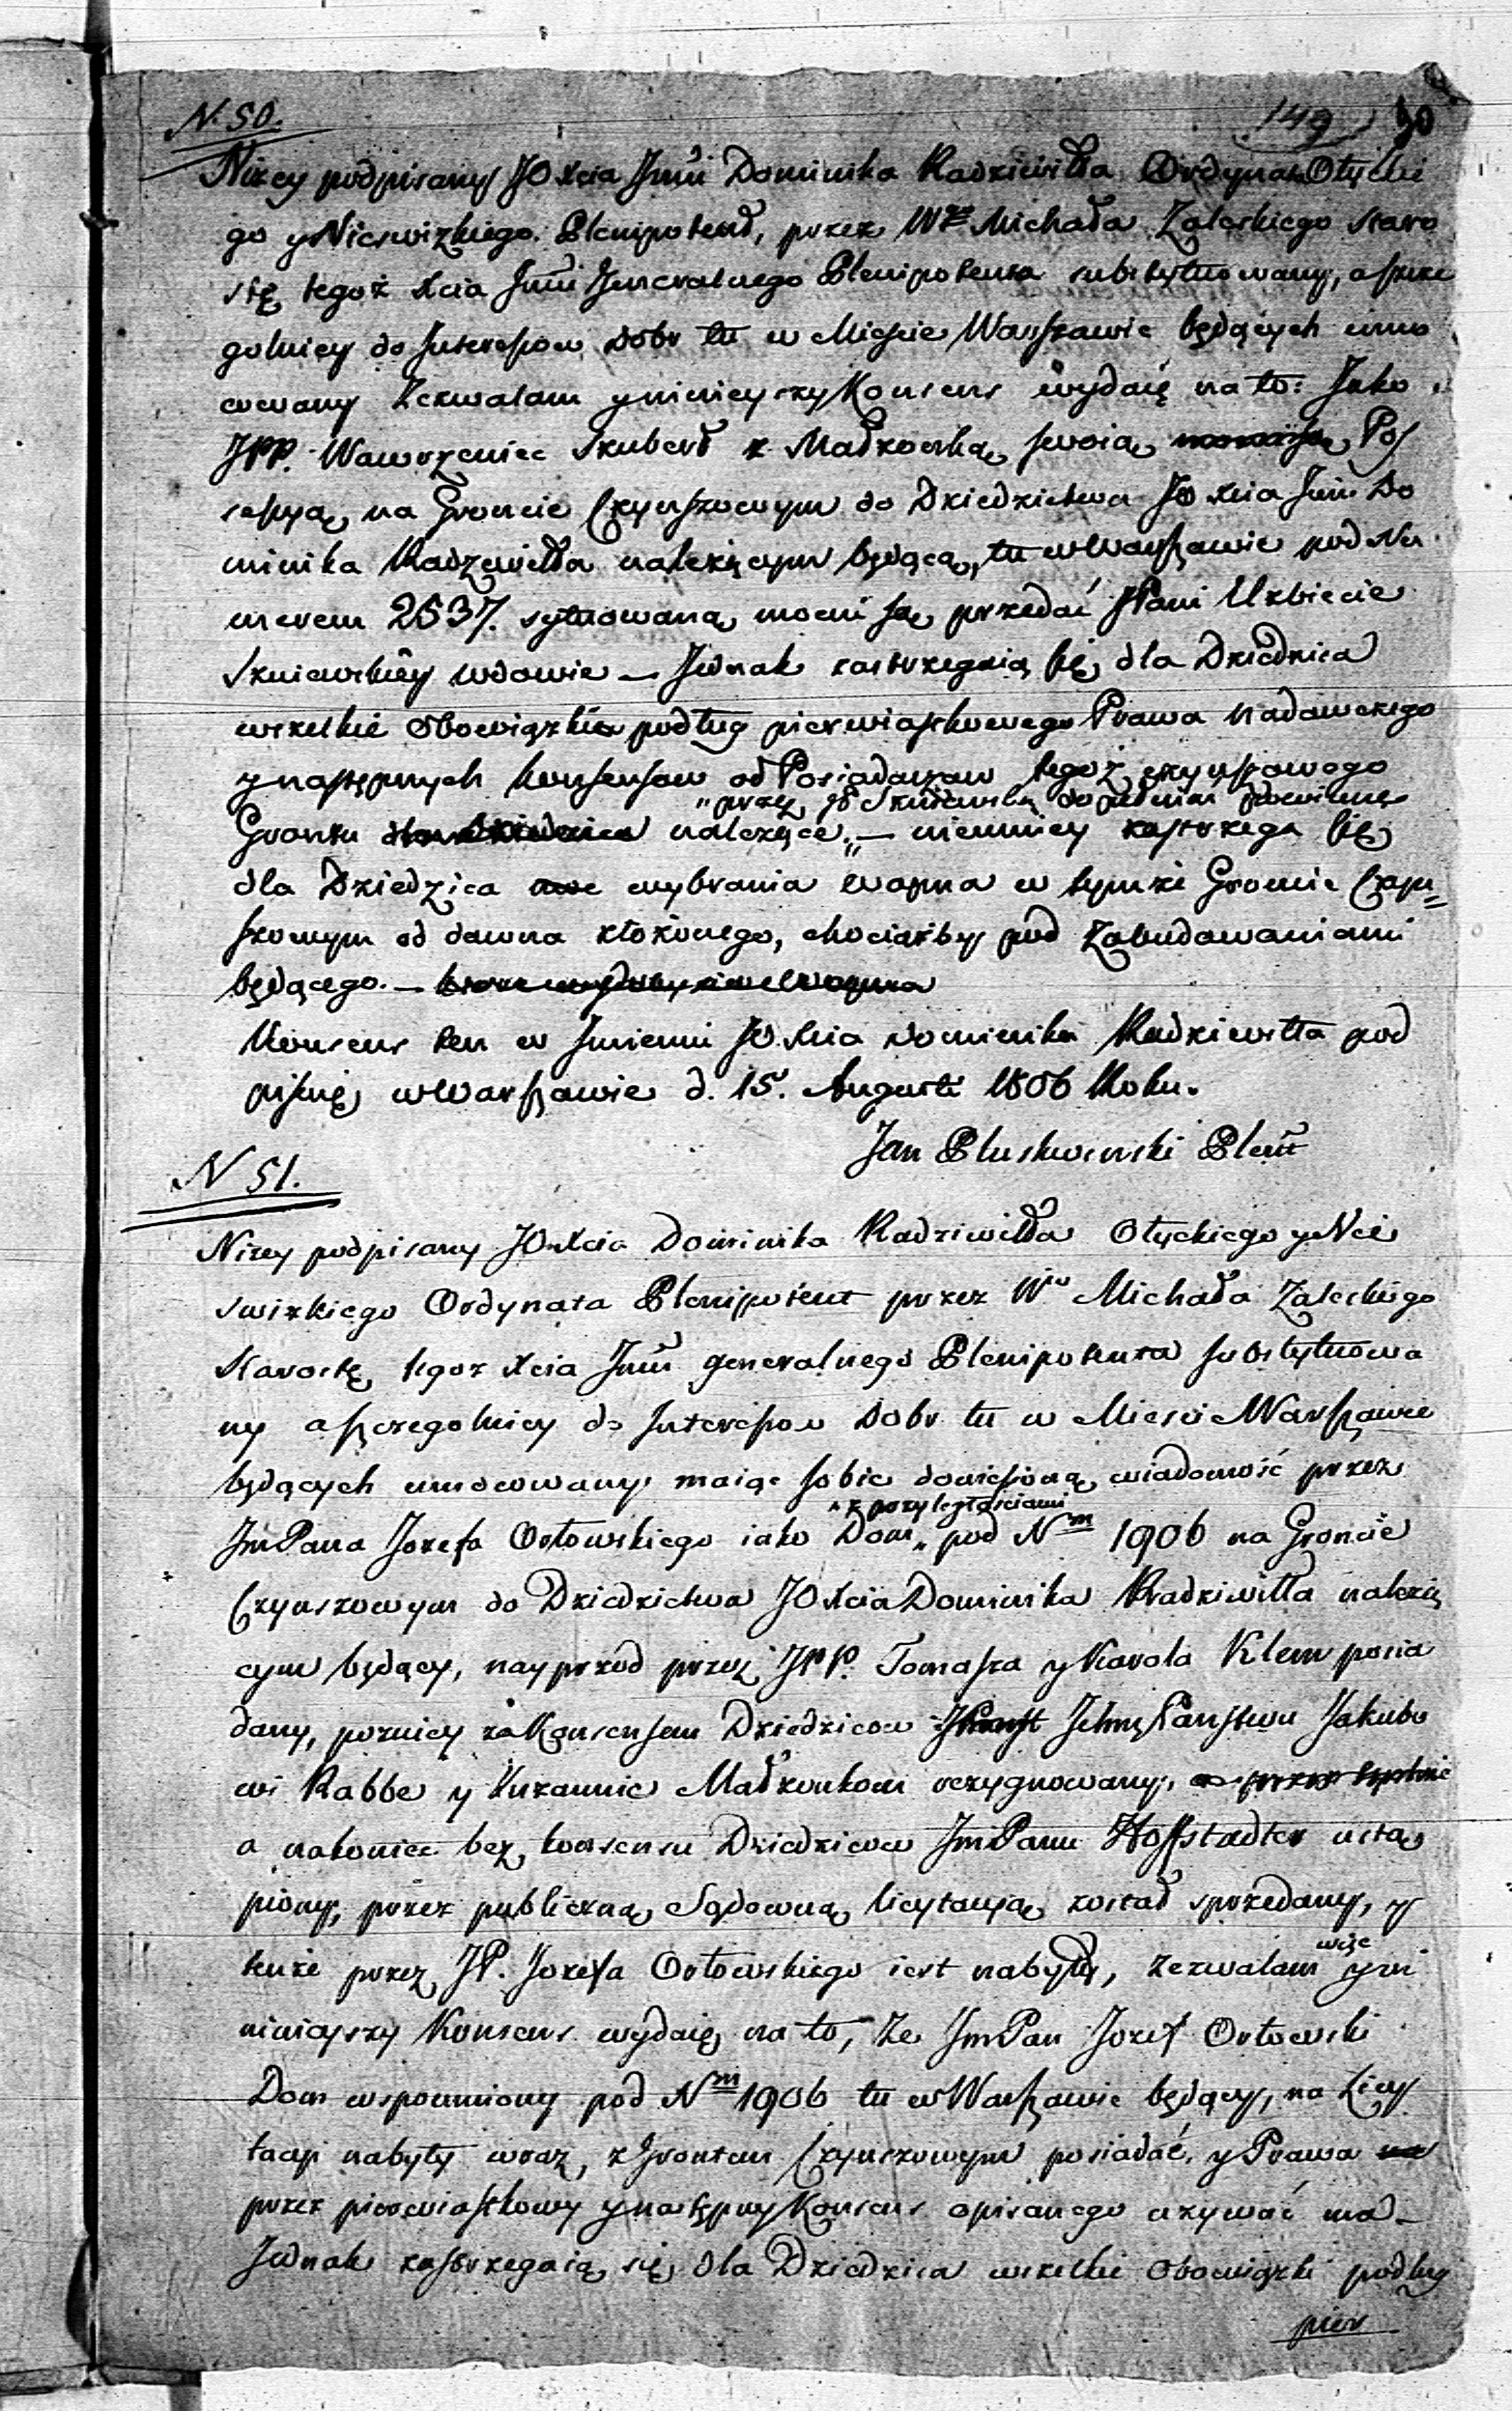 N. 50.
149 50
Nizey podpisany JO Xcia Jmći Dominika Radziwiłła Ordynata Ołycki
go y Nieswizkiego Plenipotent, przez Wgo Michała Zaleskiego Staro
stę tegoż Xcia Jmći Jeneralnego Plenipotenta substytuowany, a szcze
gulniey do Interessow Dobr tu w Mieście Warszawie będących umo
cowany Zezwalam y ninieyszy Konsens wydaię na to: Jako
JPP. Wawrzeniec Skubert z Małżonką swoią Pos
sessyą na Gróncie Czynszowym do Dziedzictwa JO Xcia Jmći Do
minika Radziwiłła należącym będącą, tu w Warszawie pod Nu
merem 2537. sytuowaną mocni są przedać JPani Elzbiecie
Skniewskiey wdowie – Jednak zastrzegaią się dla Dziedzica
wszelkie obowiązkie podług pierwiastkowego Prawa nadawczego
y następnych konsensow od Posiadaczow tegoż czynszowego
„przez JP Skniewską dopełnione powinne
Grontu dla Dziedzica należące„ – niemniey zastrzega się
dla Dziedzica wybrania wapna w tymże Groncie Czyn=
szowym od dawna złożonego, chociażby pod Zabudowaniami
będącego. –
Konsens ten w Imieniu JO Xcia Dominika Radziwiłła pod
pisuię w Warszawie d. 15. Augusti 1806 Roku.
Jan Pluskwinski Plent
N 51.
Nizey podpisany JO Xcia Dominika Radziwiłła Ołyckiego y Nie
swizkiego Ordynata Plenipotent przez Wgo Michała Zaleskiego
Starostę tegoz Xcia Jmći generalnego Plenipotenta substytuowa
ny a szczegolniey do Interessow Dobr tu w Miescie Warszawie
będących umocowany, maiąc sobie doniesioną wiadomość przez
„z przyległościami
JmPana Jozefa Orłowskiego iako Dom„ pod Nm 1906 na Groncie
Czynszowym do Dziedzictwa JO Xcia Dominika Radziwiłła należą
cym będący, nayprzod przez JPP. Tomasza y Karola Klem posia
dany, pozniey za Konsensem Dziedzicow Ichmć Panstwu Jakubo
wi Rabbe y Zuzannie Małżonkom rezygnowany,
a nakoniec bez konsensu Dziedzicow JmPanu Hoffstadter ustą
piony, przez publiczną Sądową licytacyą został sprzedany, y
tenże przez JP. Jozefa Orłowskiego iest nabyty, zezwalam więc y ni
ninieyszy Konsens wydaię na to, że JmPan Jozef Orłowski
Dom wspomniony pod Nm 1906 tu w Warszawie będący, na Licy
tacyi nabyty wraz z Grontem Czynszowym posiadać, y Prawa
przez pierwiastkowy y następny Konsens opisanego uzywać ma –
Jednak zastrzegaią się dla Dziedzica wszelkie obowiązki podług
pier